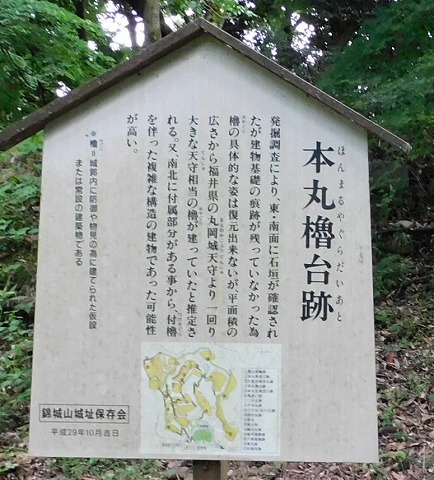 本丸櫓台跡
ほんまるやぐらだいあと
発掘調査により、東・南面に石垣が確認され
たが建物基礎の痕跡が残っていなかった為
櫓の具体的な姿は復元出来ないが平面積の
広さから福井県の丸岡城天守より一回り
大きな天守相当の櫓が建っていたと推定さ
れる。又、南北に付属部分がある事から、付櫓
を伴った複雑な構造の建物であった可能性
が高い。
※櫓=城郭内に防御や物見の為に建てられた仮設
または常設の建築物である
錦城山城址保存会
平成29年10月吉日